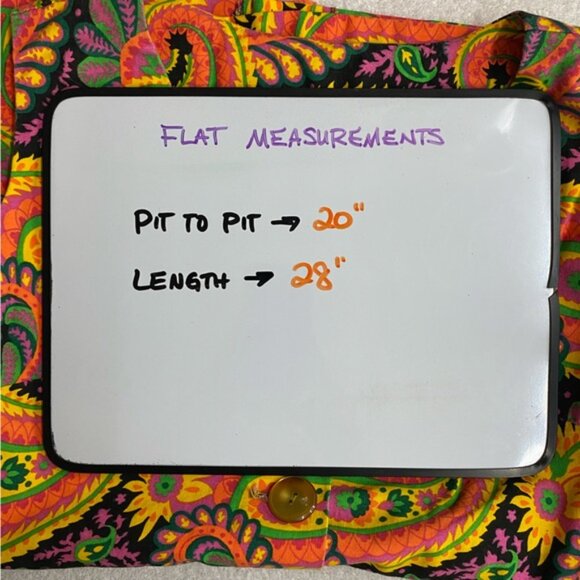 FLAT MEASUREMENTS
PIT TO PIT → 20"
LENGTH → 28"